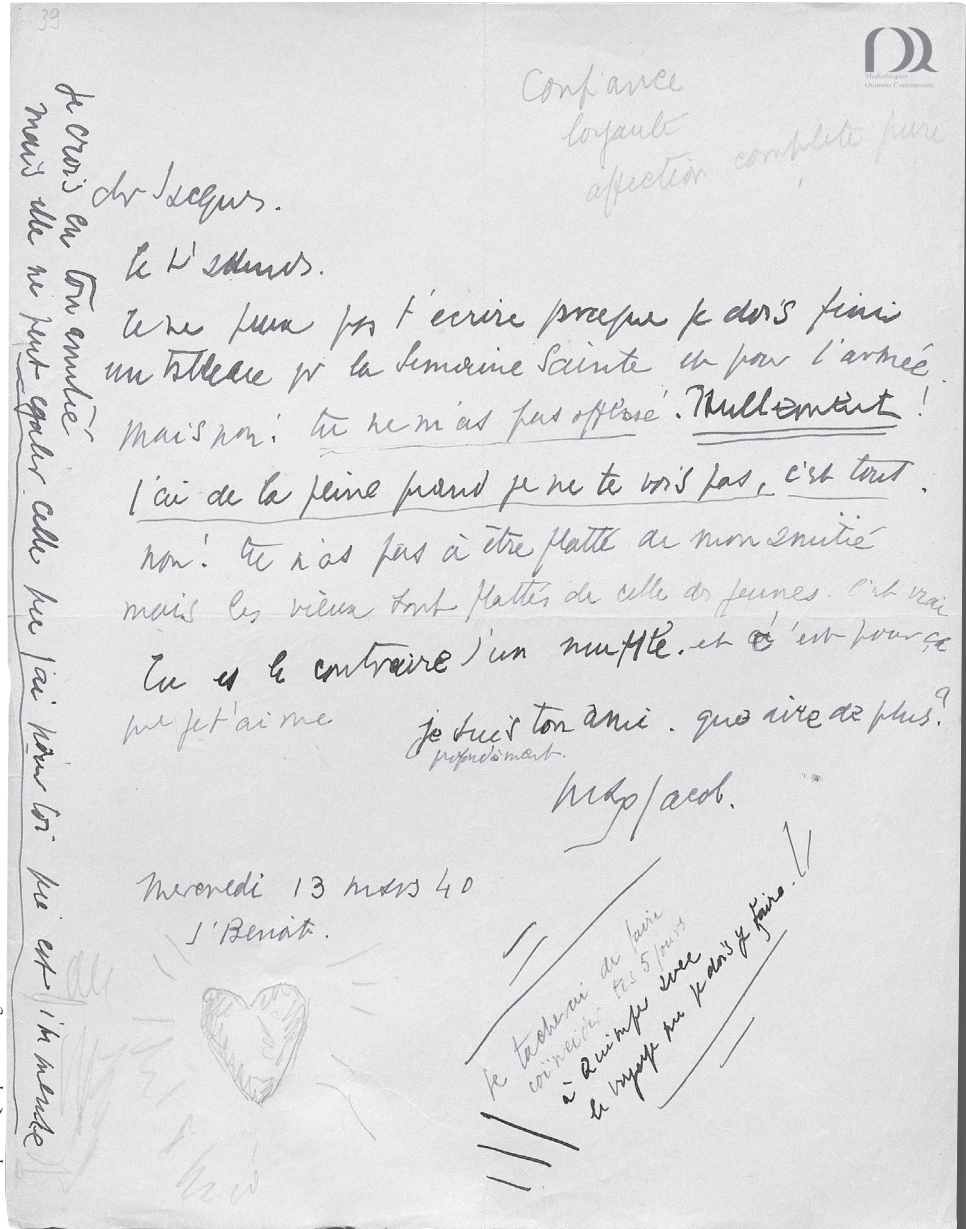 39
Médiathèques
Quimper Communauté
Confiance
loyauté
affection complète pure
chr Jacques.
Je t'attends.
Je ne peux pas t'écrire parceque je dois finir
un tableau pr la Semaine Sainte et pour l'armée.
Mais non! tu ne m'as pas offensé. Nullement!
J'ai de la peine quand je ne te vois pas, c'est tout.
non! tu n'as pas à être flatté de mon amitié
mais les vieux sont flattés de celle des jeunes. c'est vrai
Tu es le contraire d'un muffle. et c'est pour ça
que je t'aime
je suis ton ami. que dire de plus?
profondément.
Max Jacob.
Mercredi 13 mars 40
St Benoit.
Je tacherai de faire
coïncider tes 5 jours
à Quimper avec
le voyage que je dois y faire.!!
Je crois en ton amitié
mais elle ne peut égaler celle que j'ai pour toi qui est immense